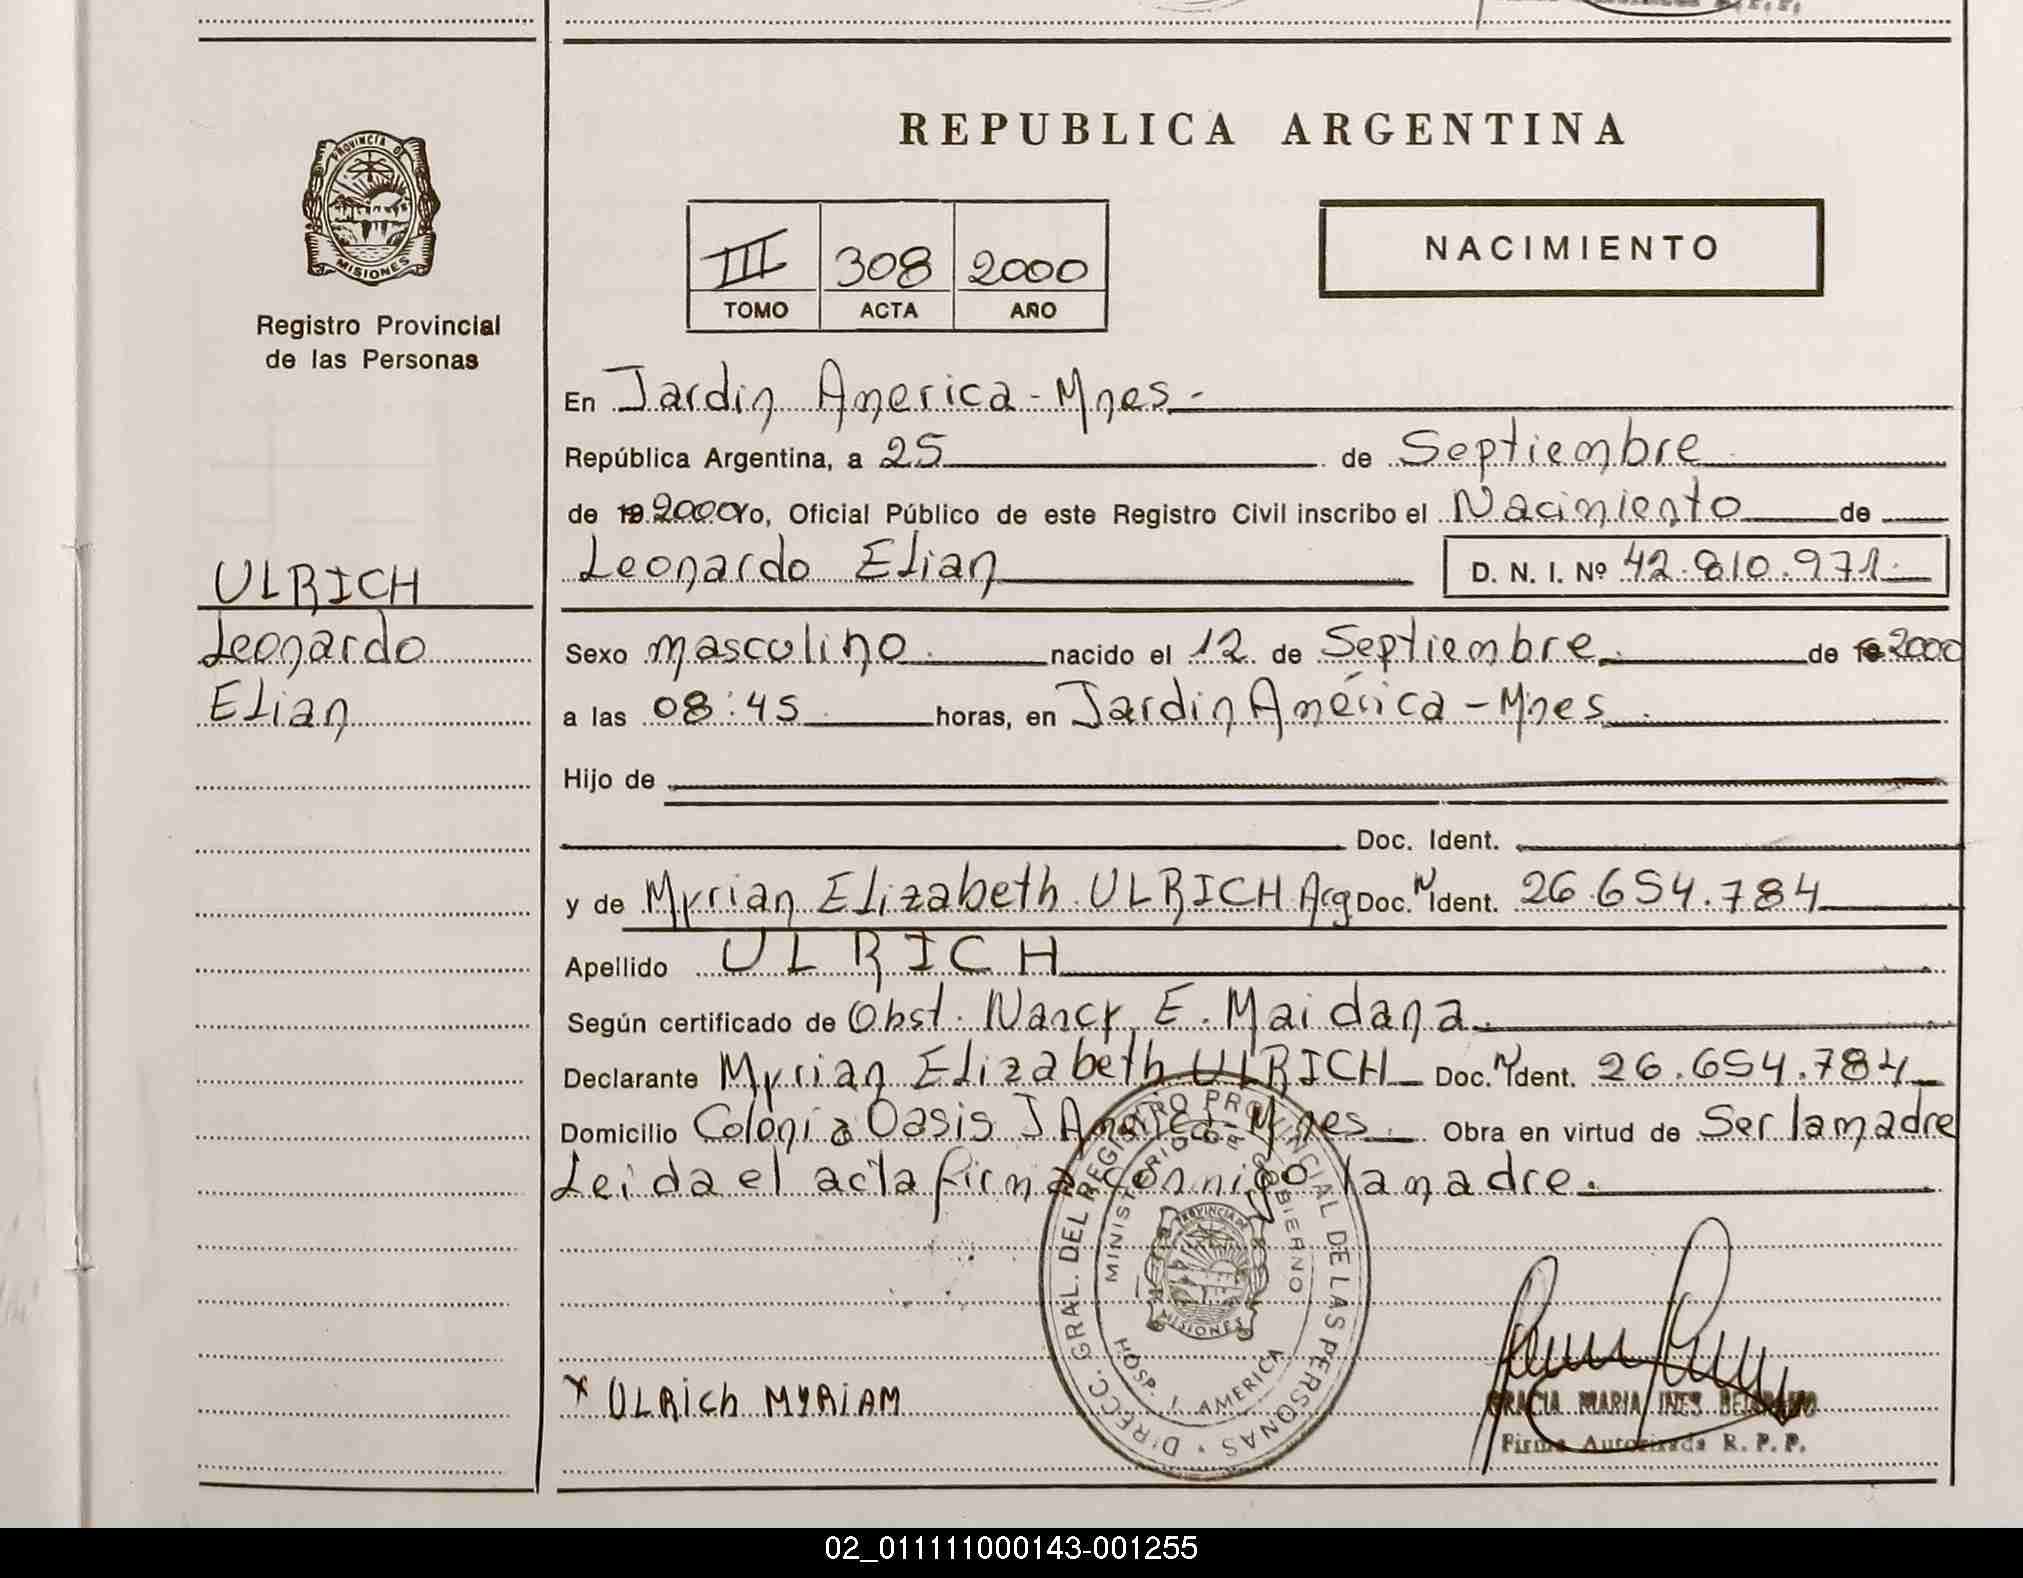 REPUBLICA ARGENTINA
PROVINCIA DE
MISIONES
Registro Provincial
de las Personas
III 308 2000
TOMO ACTA AÑO
NACIMIENTO
En Jardin America - Mnes -
República Argentina, a 25 de Septiembre
de 19 2000 Yo, Oficial Público de este Registro Civil inscribo el Nacimiento de
Leonardo Elian D. N. I. Nº 42.810.971.
ULRICH
Leonardo
Elian
Sexo masculino. nacido el 12 de Septiembre. de 19 2000
a las 08:45 horas, en Jardin América - Mnes.
Hijo de
Doc. Ident.
y de Myrian Elizabeth ULRICH Arg Doc. N Ident. 26.654.784
Apellido ULRICH
Según certificado de Obst. Nancy E. Maidana.
Declarante Myrian Elizabeth ULRICH Doc. N Ident. 26.654.784
Domicilio Colonia Oasis J America - Mnes. Obra en virtud de Ser la madre
Leida el acta firma conmigo la madre.
DIRECC. GRAL. DEL REGISTRO PROVINCIAL DE LAS PERSONAS
MINISTERIO DE GOBIERNO
PROVINCIA DE
MISIONES
HOSP. J. AMERICA
x ULRich MYRiAM
GRACIA MARIA INES
Firma Autorizada R. P. P.
02_011111000143-001255